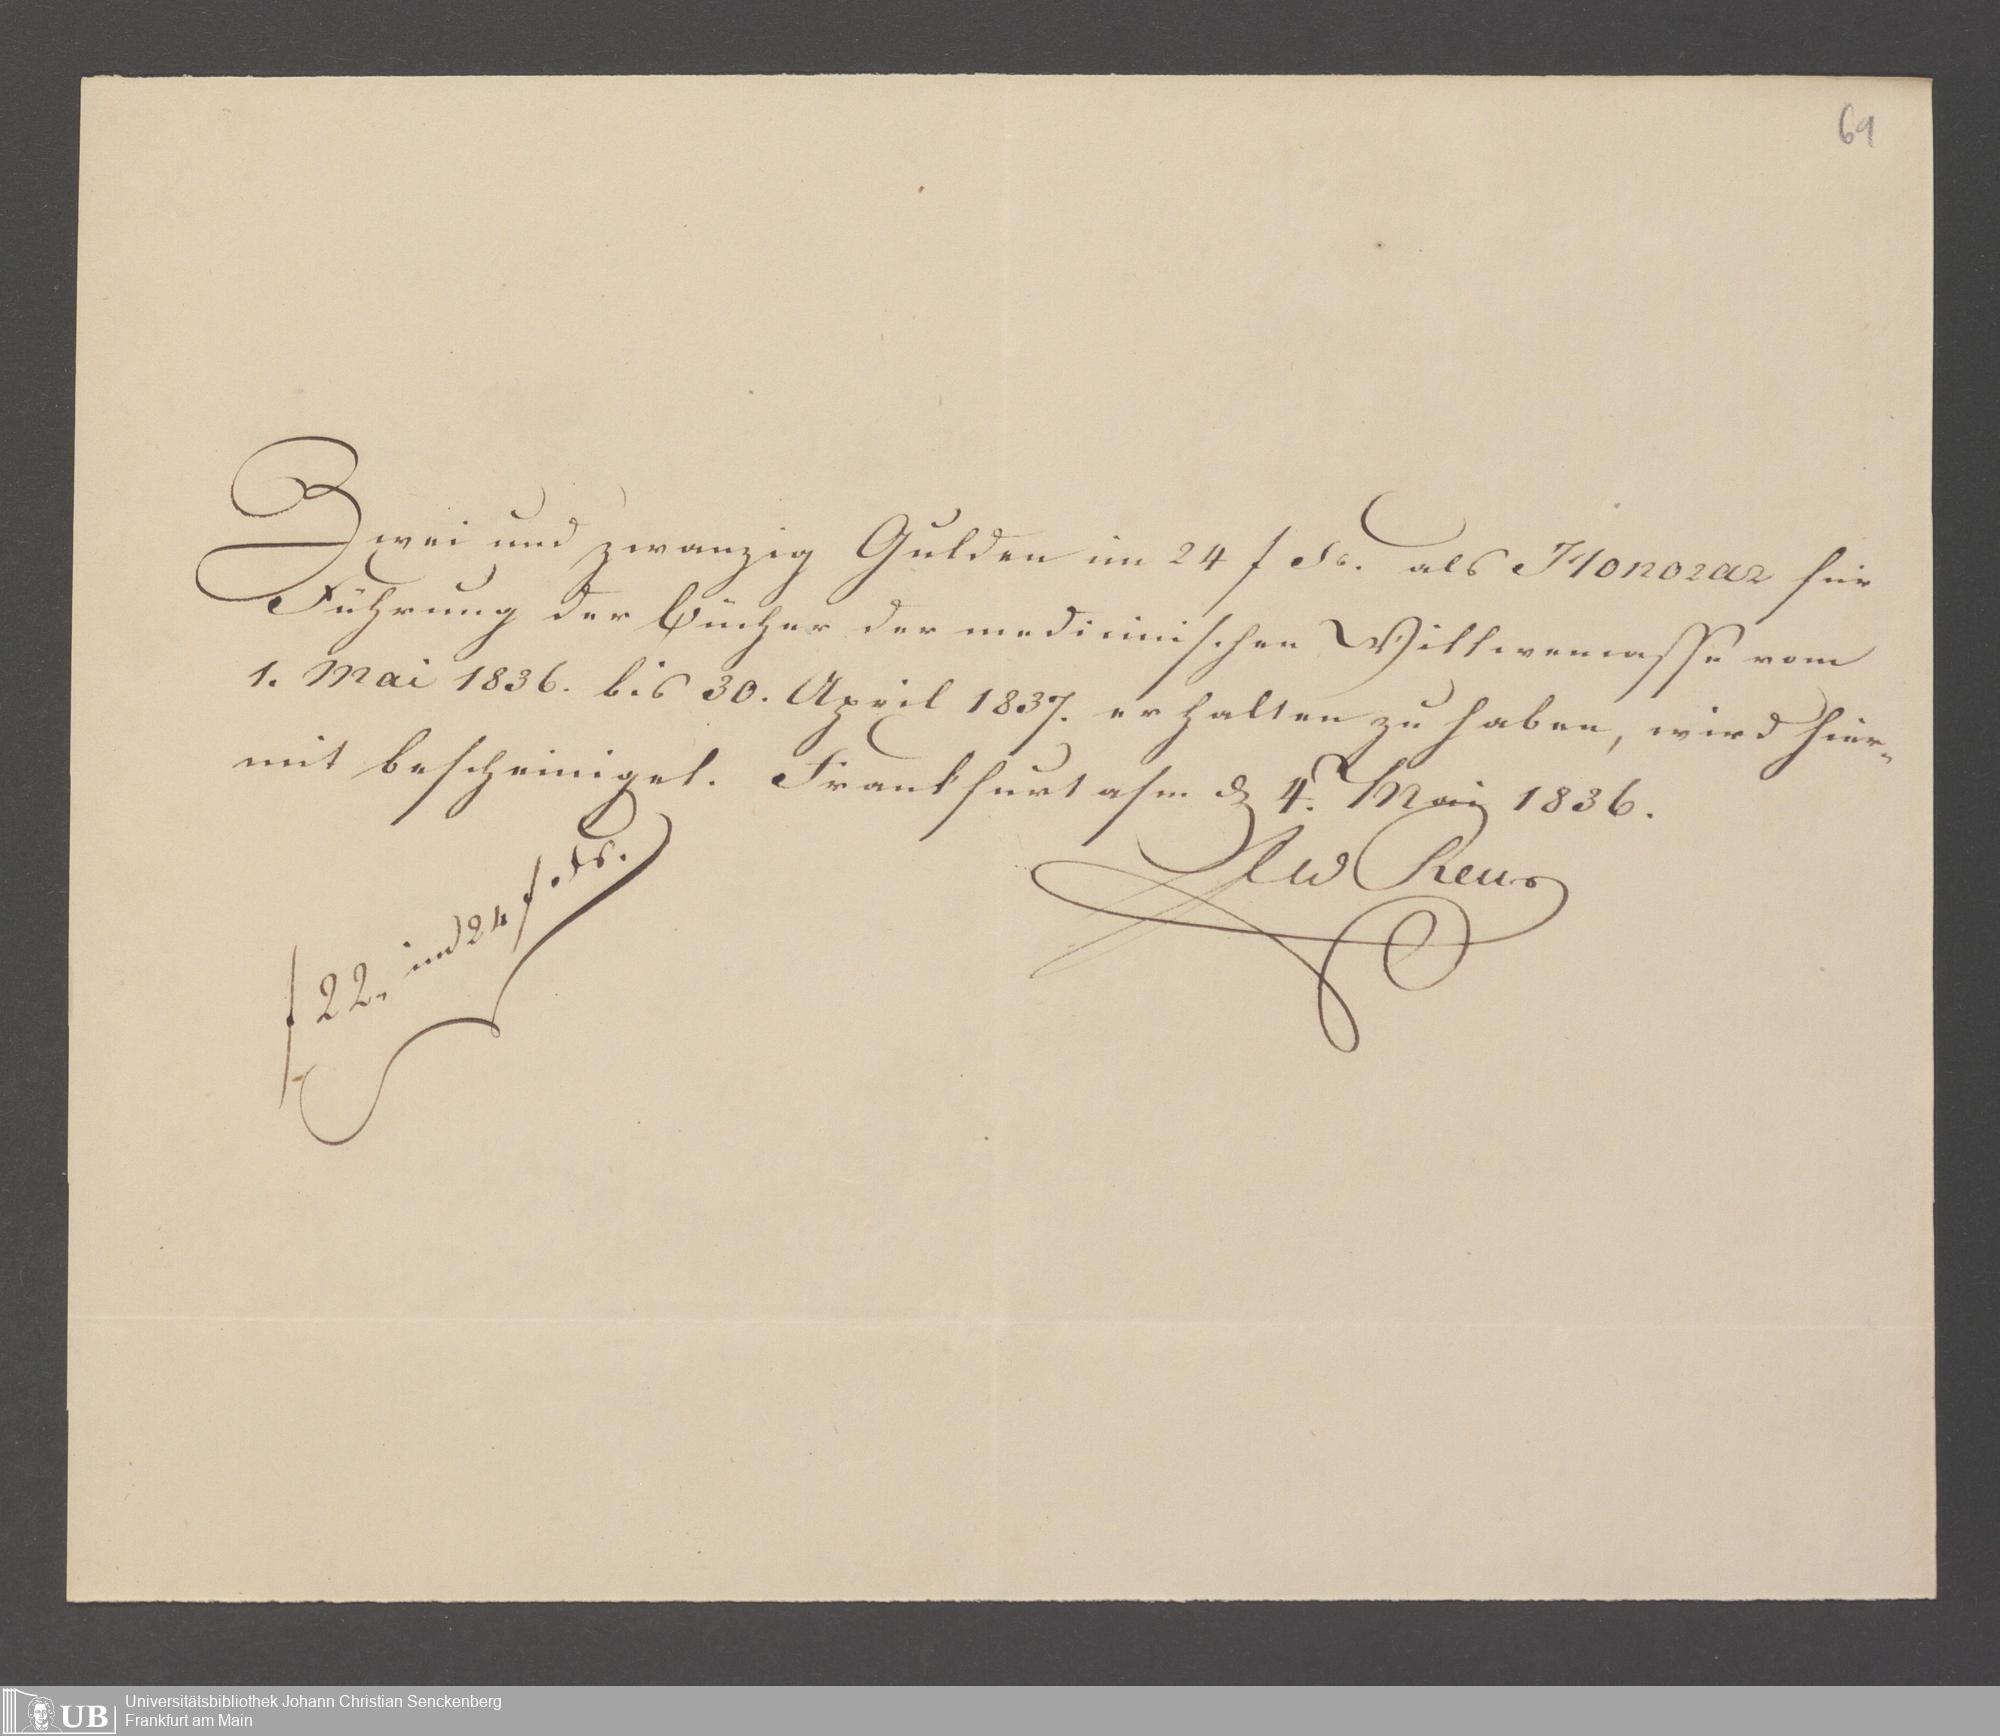 69
Zwei und zwanzig Gulden im 24 f Fs. als Honorar für
Führung der Bücher der medicinischen Wittwencasse vom
1. Mai 1836. bis 30. April 1837. erhalten zu haben, wird hier-
mit bescheiniget. Frankfurt a/m d 4. Mai 1836.
Reus
f 22. im 24 f. Fs.
UB
Universitätsbibliothek Johann Christian Senckenberg
Frankfurt am Main